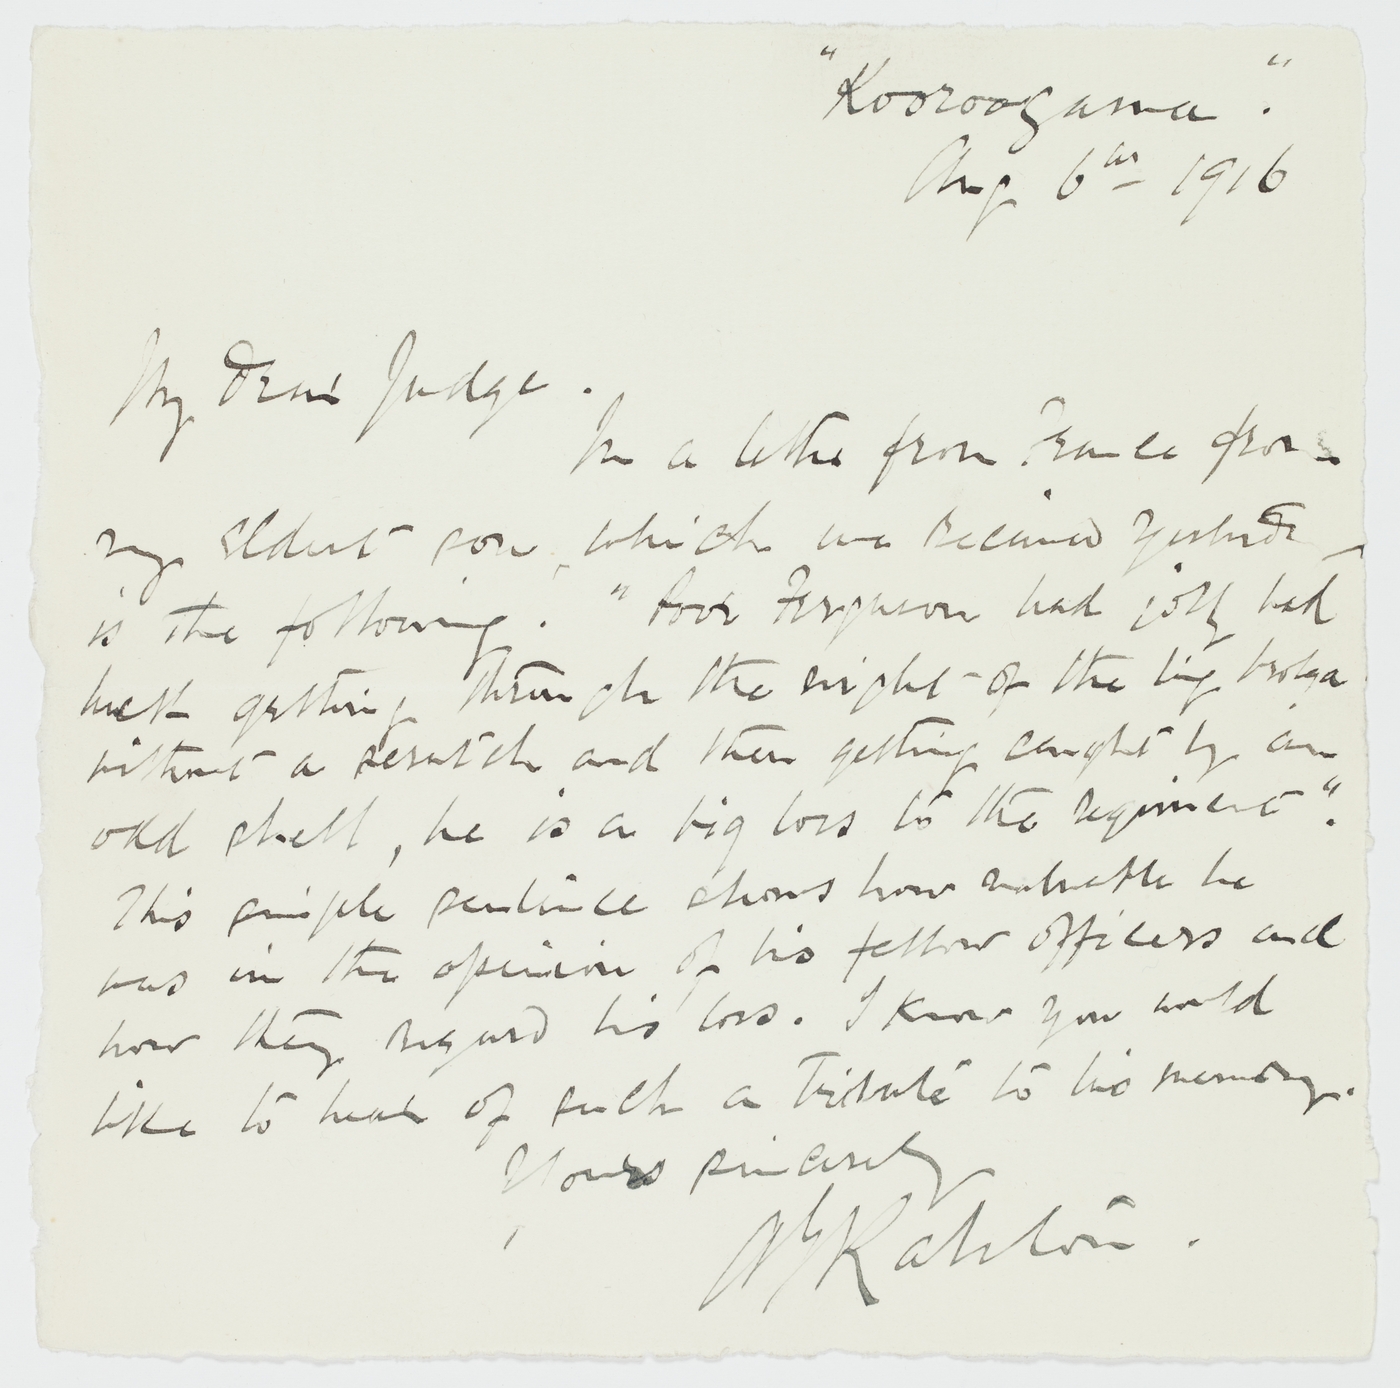 "Kooroogama".
Aug 6th 1916
My Dear Judge.
In a letter from France from
my eldest son, which we received yesterday
is the following. "Poor Ferguson had jolly bad
luck getting through the night of the big
without a scratch and then getting caught by an
odd shell, he is a big loss to the regiment".
This simple sentence shows how valuable he
was in the opinion of his fellow officers and
how they regard his loss. I know you would
like to hear of such a tribute to his memory.
Yours sincerely
Ralston.